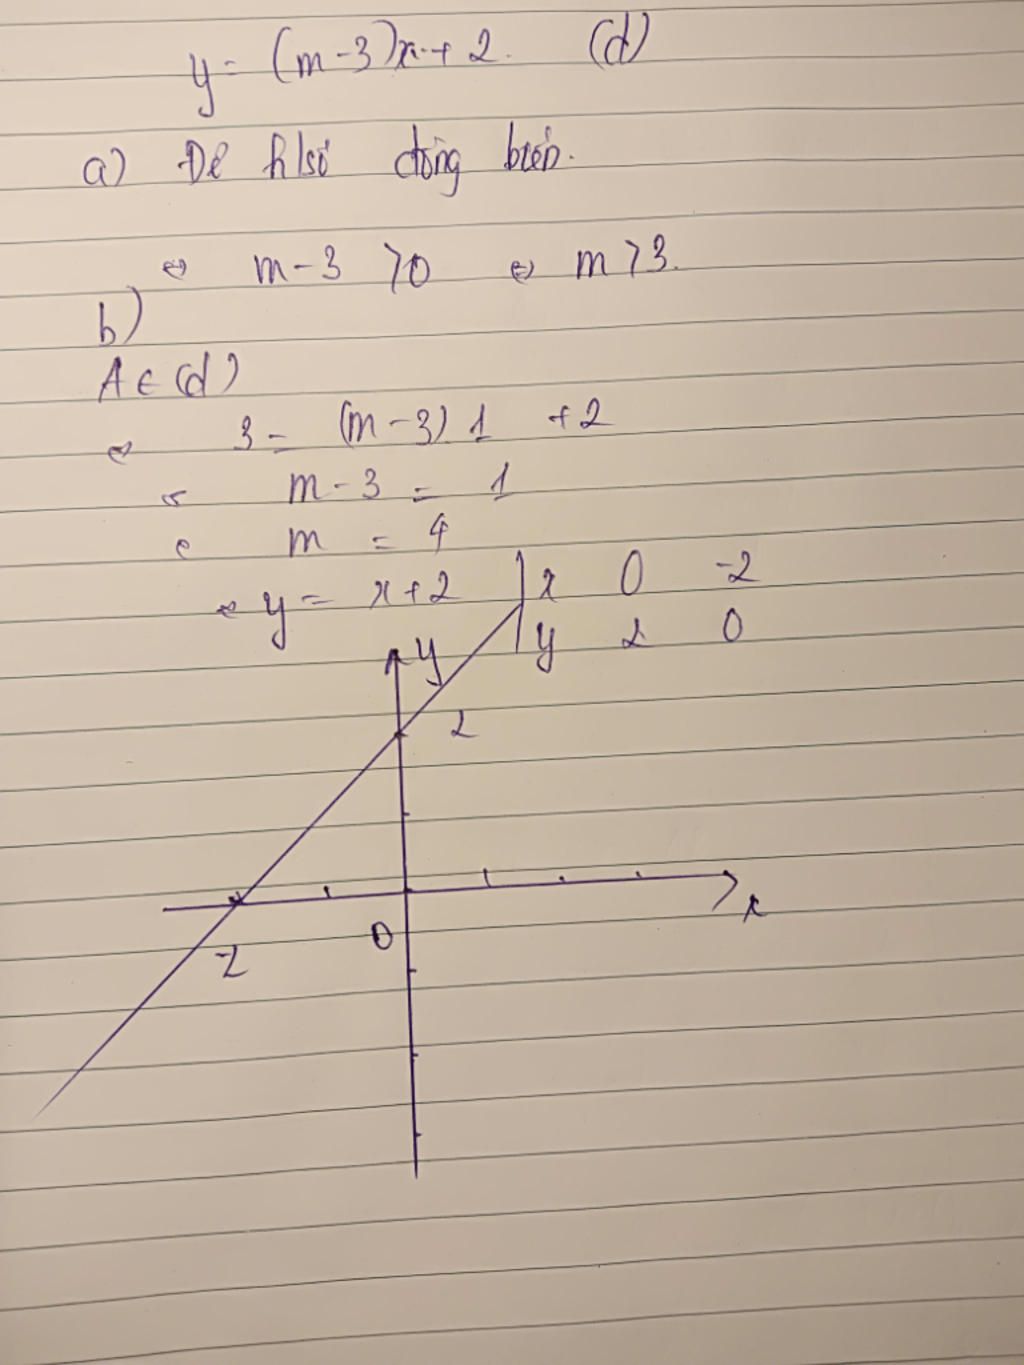 y = (m-3)x + 2. (d)
a) Để h/số đồng biến.
⇔ m-3 >0 ⇔ m>3.
b)
A ∈ (d)
⇔ 3 = (m-3) 1 +2
⇔ m-3 = 1
⇔ m = 4
⇔ y = x+2 | x 0 -2
| y 2 0
y
2
x
0
-2